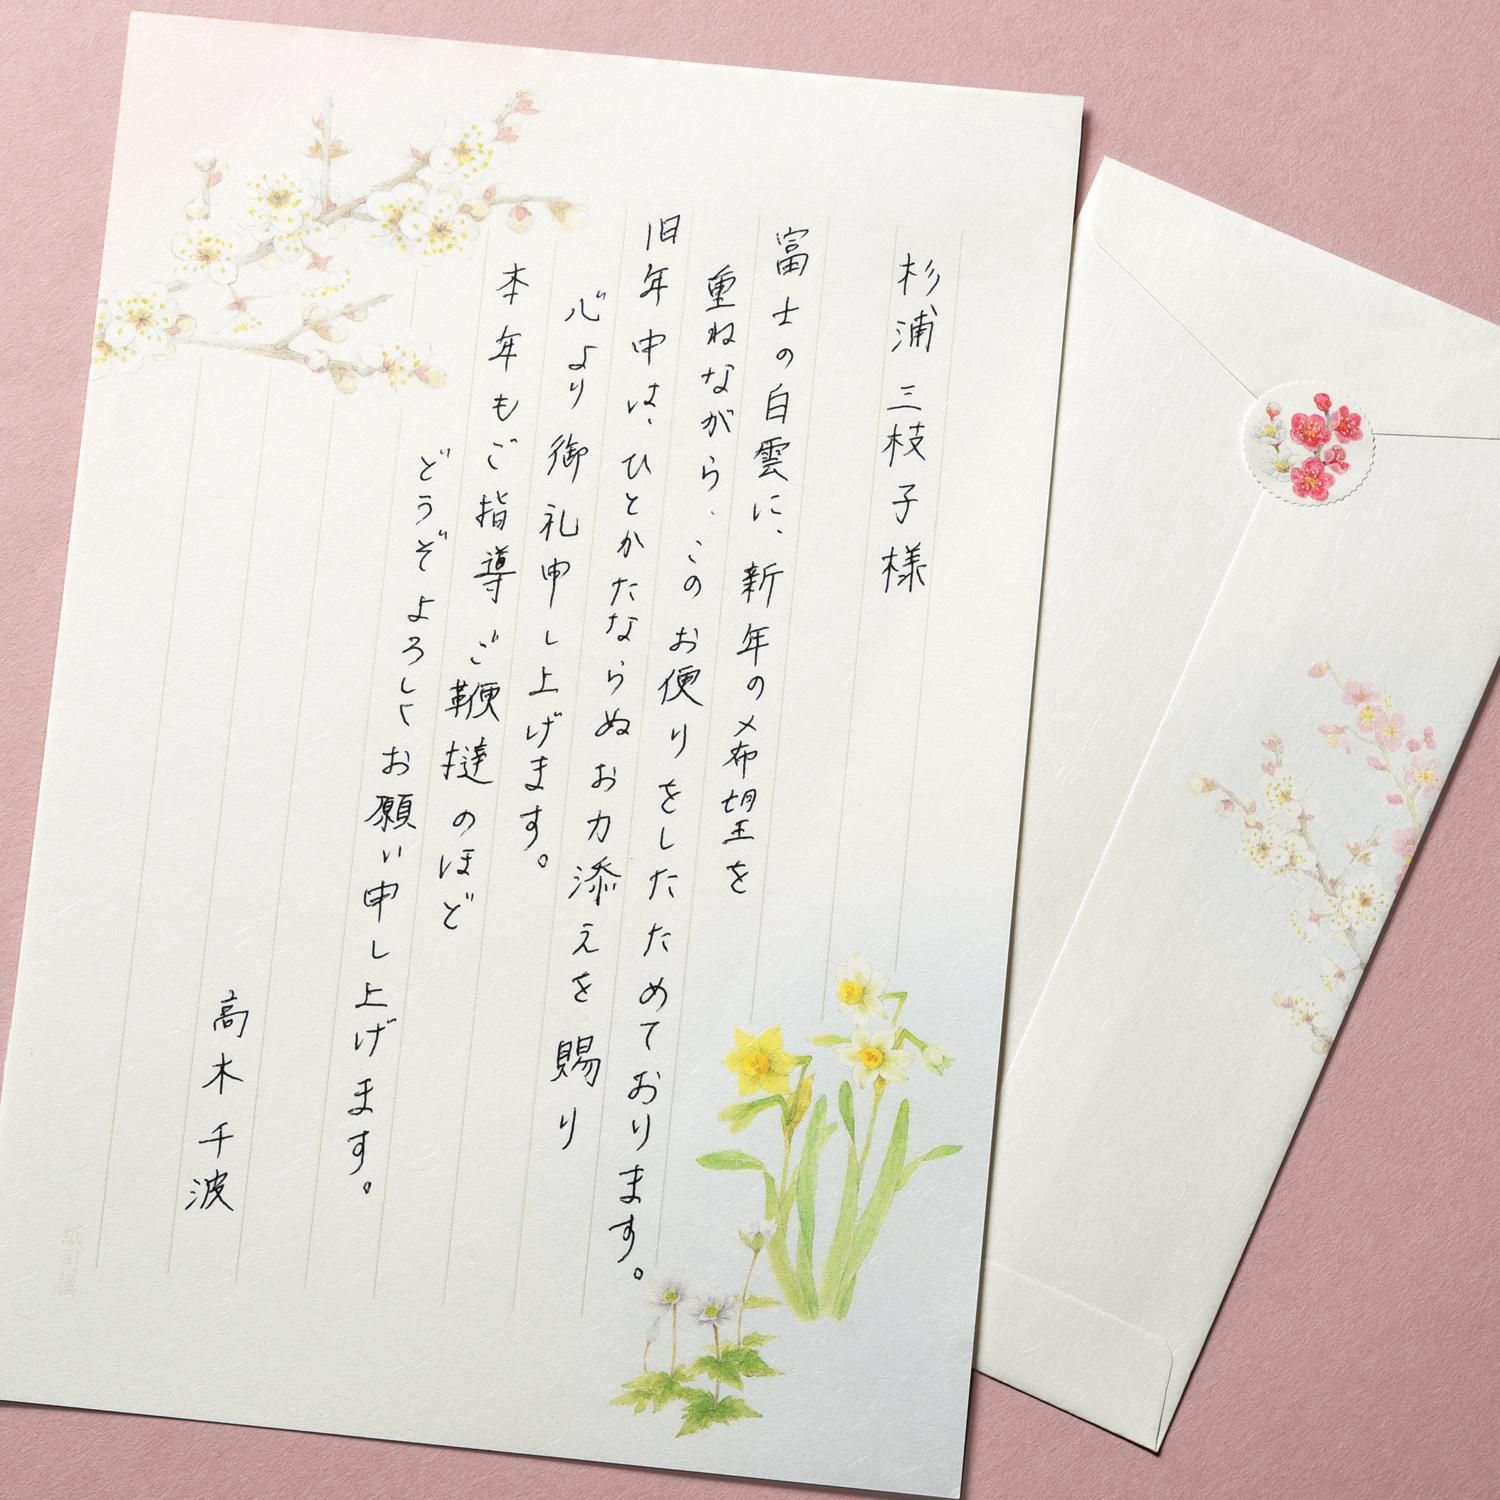 杉浦三枝子様
富士の白雲に、新年の希望を
重ねながら、このお便りをしたためております。
旧年中は、ひとかたならぬお力添えを賜り
心より御礼申し上げます。
本年もご指導ご鞭撻のほど
どうぞよろしくお願い申し上げます。
高木千波